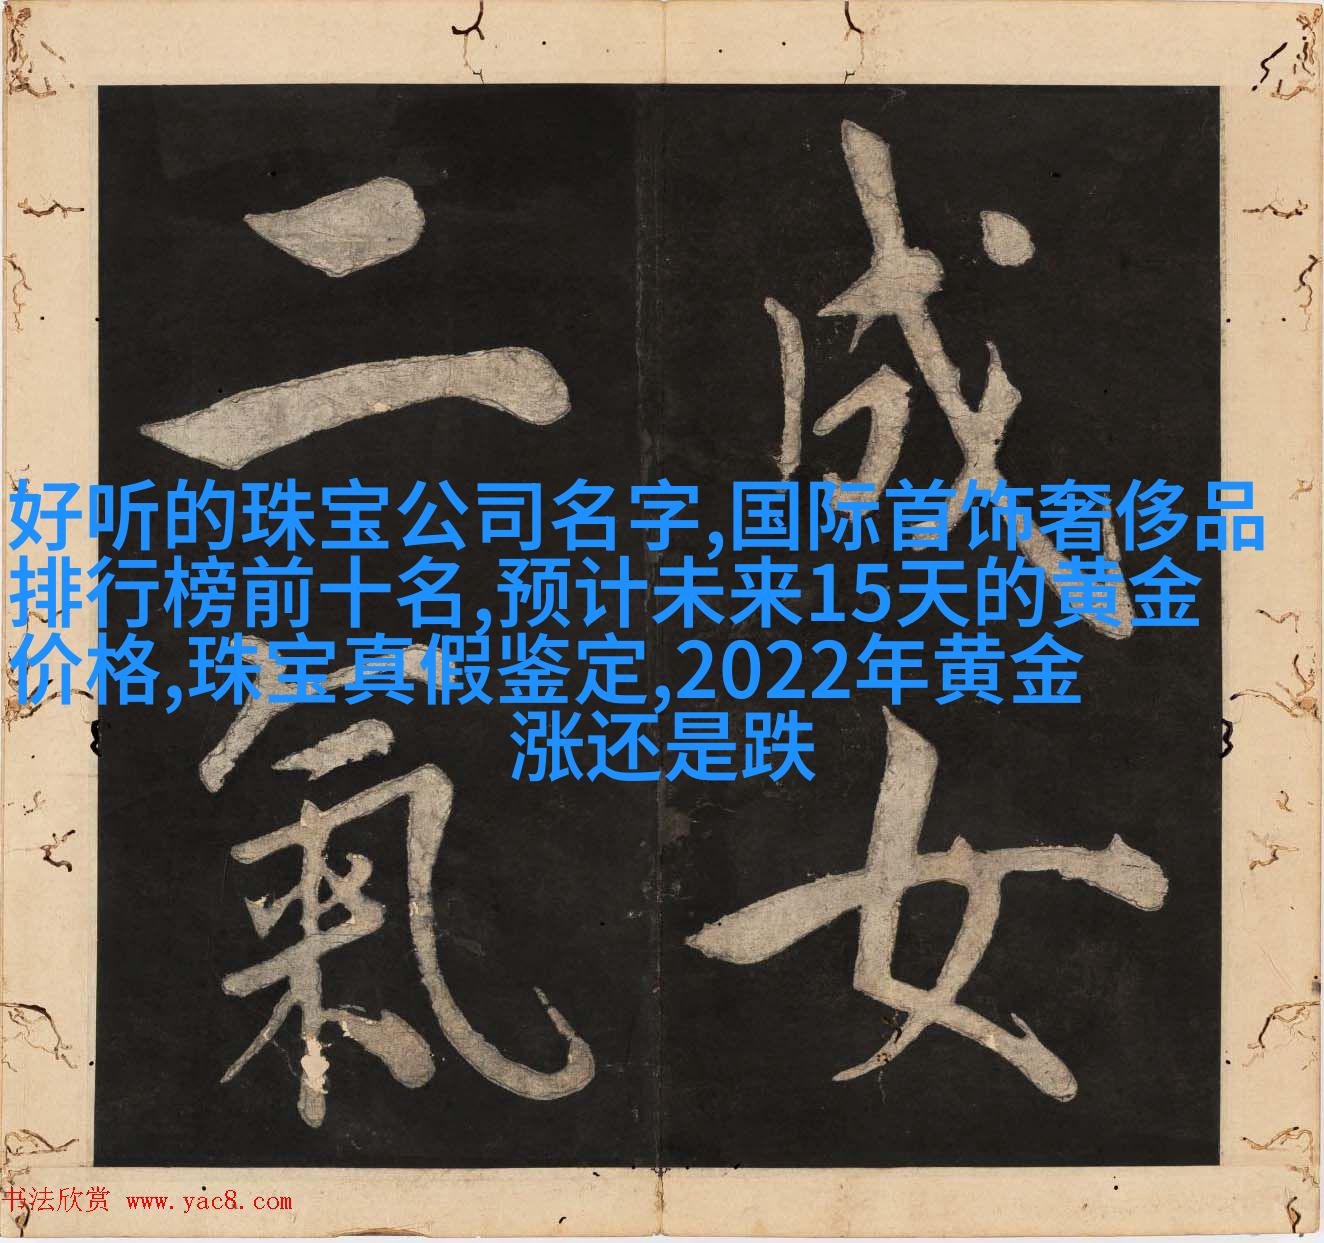 成女
二氣
好听的珠宝公司名字,国际首饰奢侈品
排行榜前十名,预计未来15天的黄金
价格,珠宝真假鉴定,2022年黄金
涨还是跌
书法欣赏 www.yac8.com